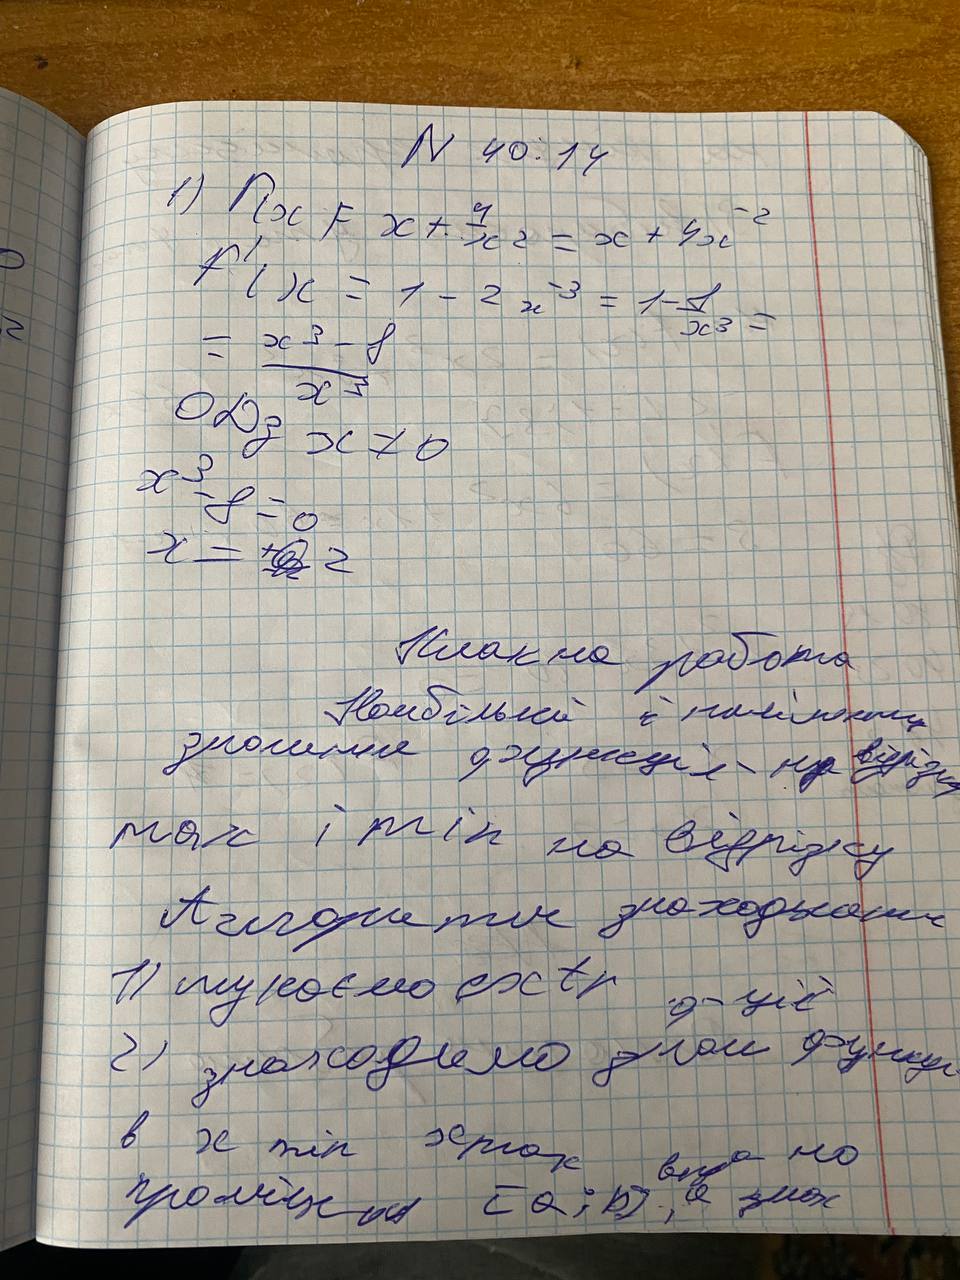 N 40:14
1) f(x) = x + 4/x2 = x + 4x^-2
f'(x = 1 - 2x^-3 = 1 - 8/x3 =
= x3 - 8 / x3
ОДЗ x ≠ 0
x3 - 8 = 0
x = 2
Класна робота
Найбільші і найменші
значення функції на відрізку
max і min на відрізку
Алгоритм знаходження
1) шукаємо extr ф-ції
2) знаходимо знач функції
в x min xmax на
проміжку [a; b], а знах